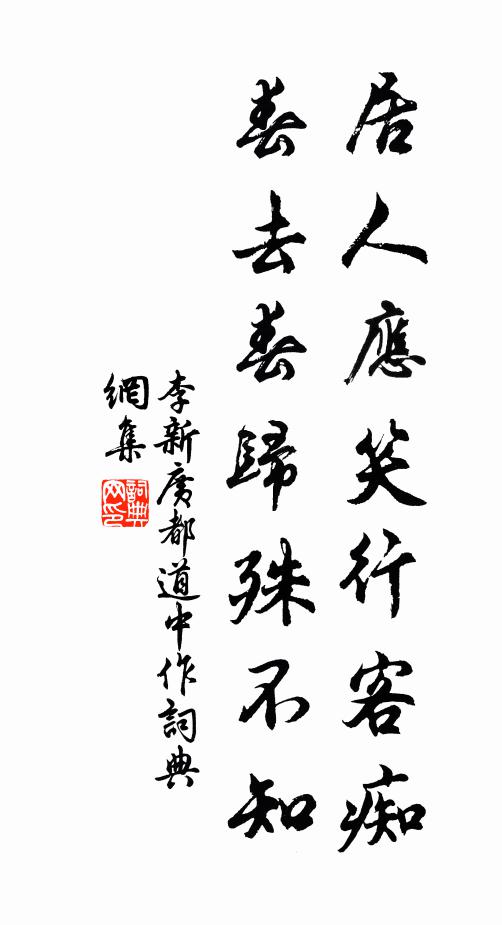 居人應笑行客痴
春去春歸殊不知
李新廣都道中作詞典
網集
詞典
网印